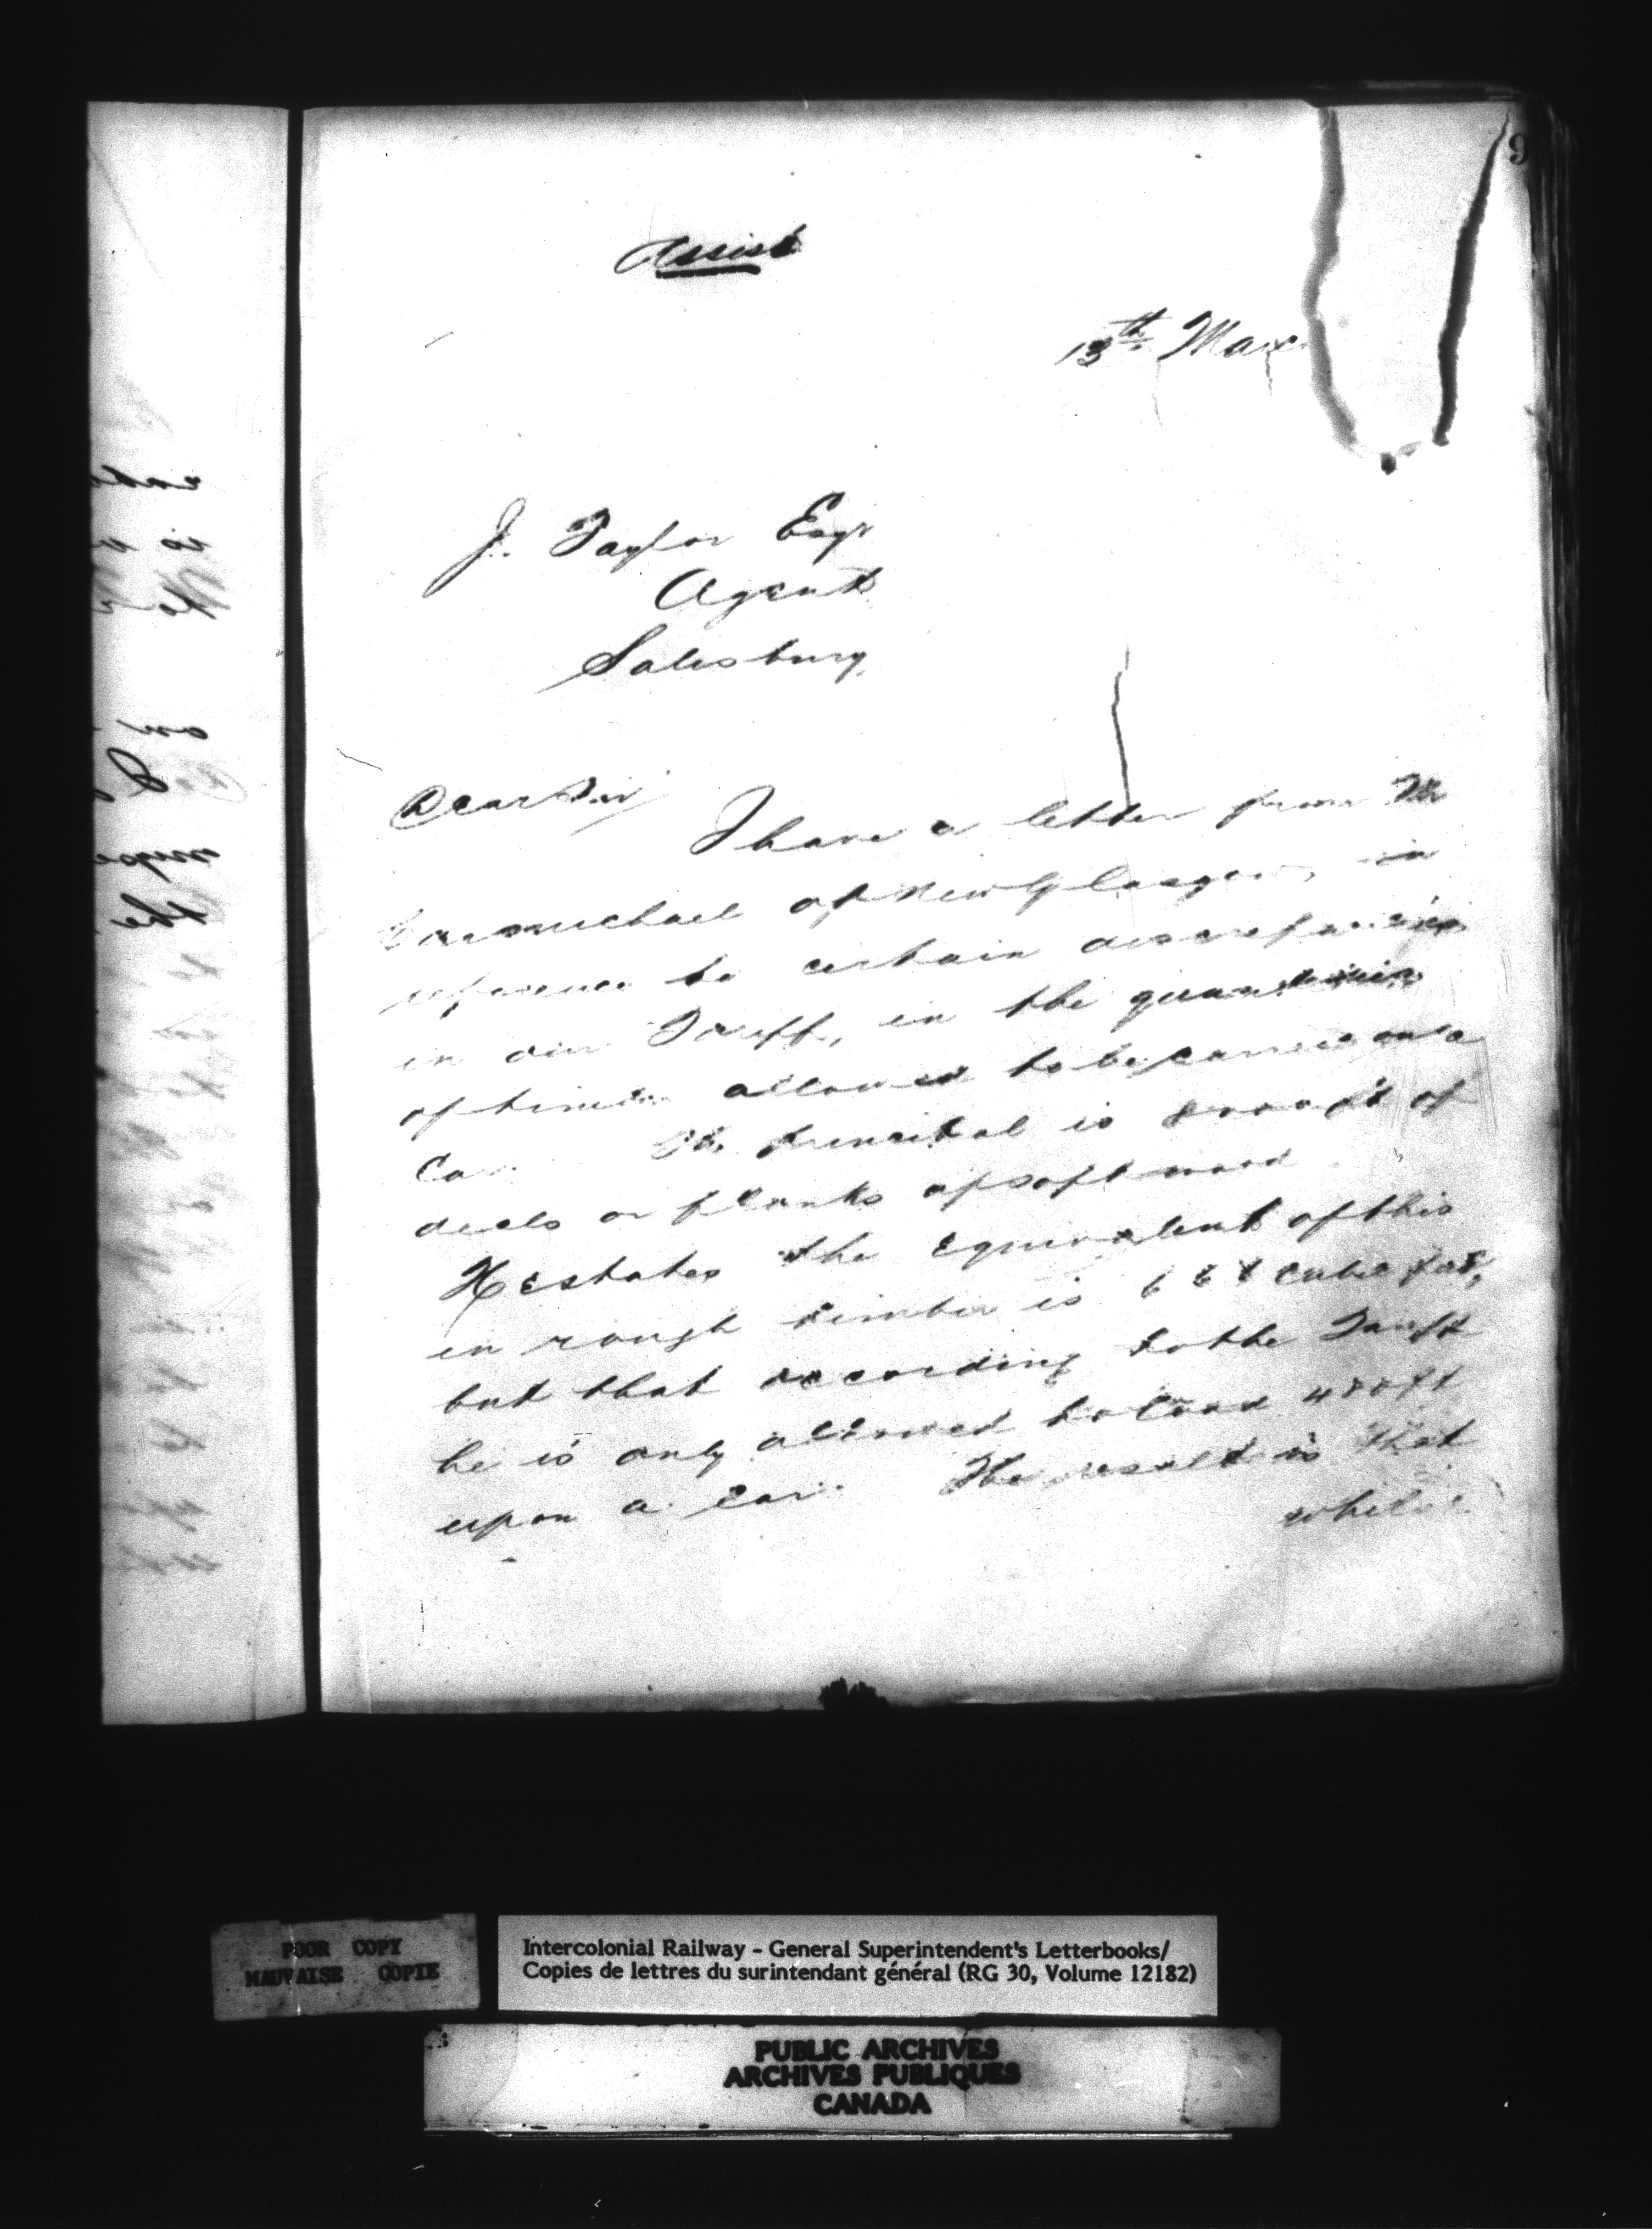 9
Assist
13th Marc
J. Taylor Esqr
Agent
Salesbury
Dear Sir
I have a letter from Mr
Carmichael of New Glasgow, in
reference to certain discrepancies
in our Tariff, in the quantities
of timber allowed to be carried on a
Car. The principal is 8000 ft of
deals or planks of soft wood
He states the equivalent of this
in rough timber is 666 cubic feet,
but that according to the Tariff
he is only allowed to load 400 ft
upon a car. The result is that
while
POOR COPY
MAUVAISE COPIE
Intercolonial Railway - General Superintendent's Letterbooks/
Copies de lettres du surintendant général (RG 30, Volume 12182)
PUBLIC ARCHIVES
ARCHIVES PUBLIQUES
CANADA